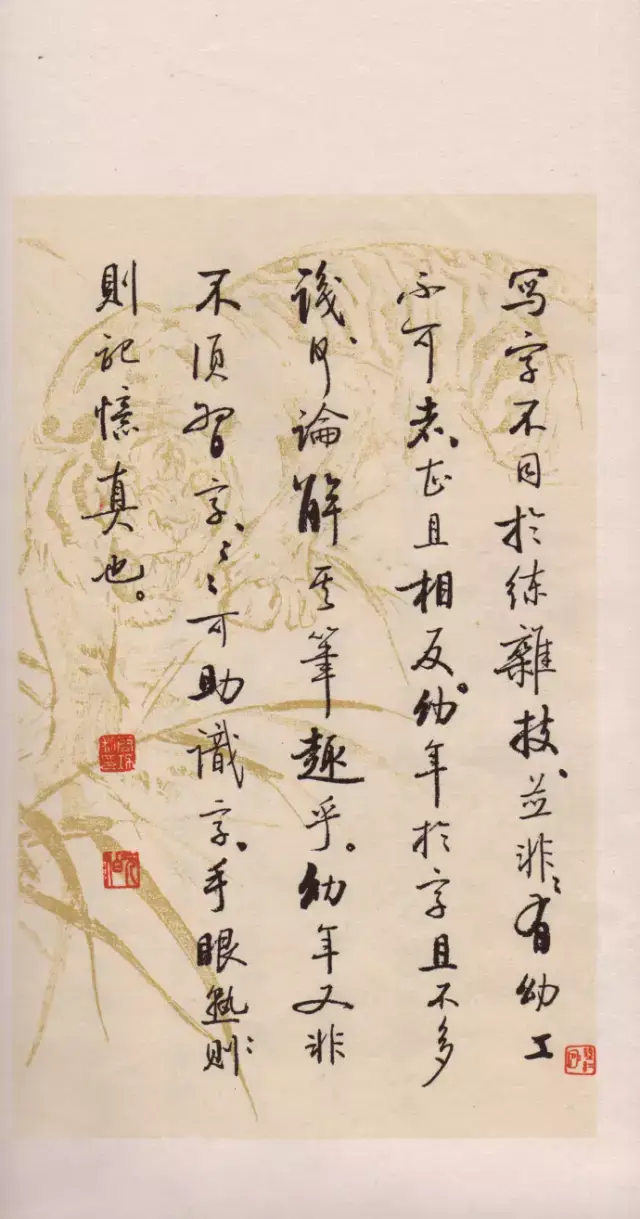 寫字不同於練雜技、並非〻有幼工
不可者、甚且相反。幼年於字且不多
識、何論解其筆趣乎。幼年又非
不須習字、〻〻可助識字。手眼熟則
則記憶真也。